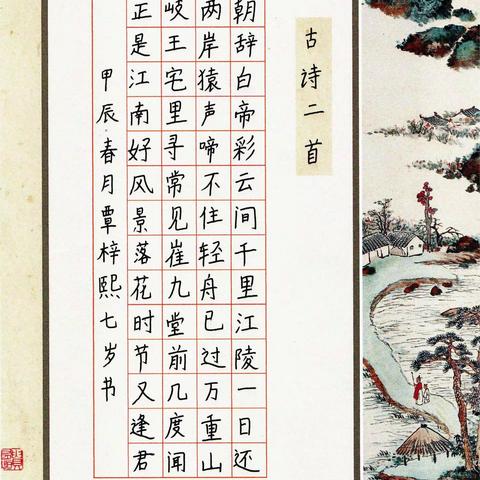 古诗二首
朝辞白帝彩云间千里江陵一日还
两岸猿声啼不住轻舟已过万重山
岐王宅里寻常见崔九堂前几度闻
正是江南好风景落花时节又逢君
甲辰春月覃梓熙七岁书